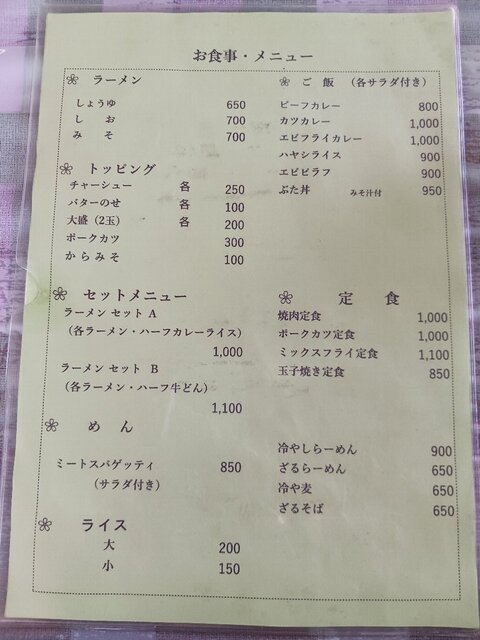 お食事・メニュー
ラーメン
しょうゆ 650
しお 700
みそ 700
トッピング
チャーシュー 各 250
バターのせ 各 100
大盛（2玉） 各 200
ポークカツ 300
からみそ 100
セットメニュー
ラーメン セット A
（各ラーメン・ハーフカレーライス）
1,000
ラーメン セット B
（各ラーメン・ハーフ牛どん）
1,100
めん
ミートスパゲッティ 850
（サラダ付き）
ライス
大 200
小 150
ご飯 （各サラダ付き）
ビーフカレー 800
カツカレー 1,000
エビフライカレー 1,000
ハヤシライス 900
エビピラフ 900
ぶた丼 みそ汁付 950
定食
焼肉定食 1,000
ポークカツ定食 1,000
ミックスフライ定食 1,100
玉子焼き定食 850
冷やしらーめん 900
ざるらーめん 650
冷や麦 650
ざるそば 650